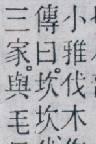 小雅伐木
傳曰。坎坎
三家。與毛